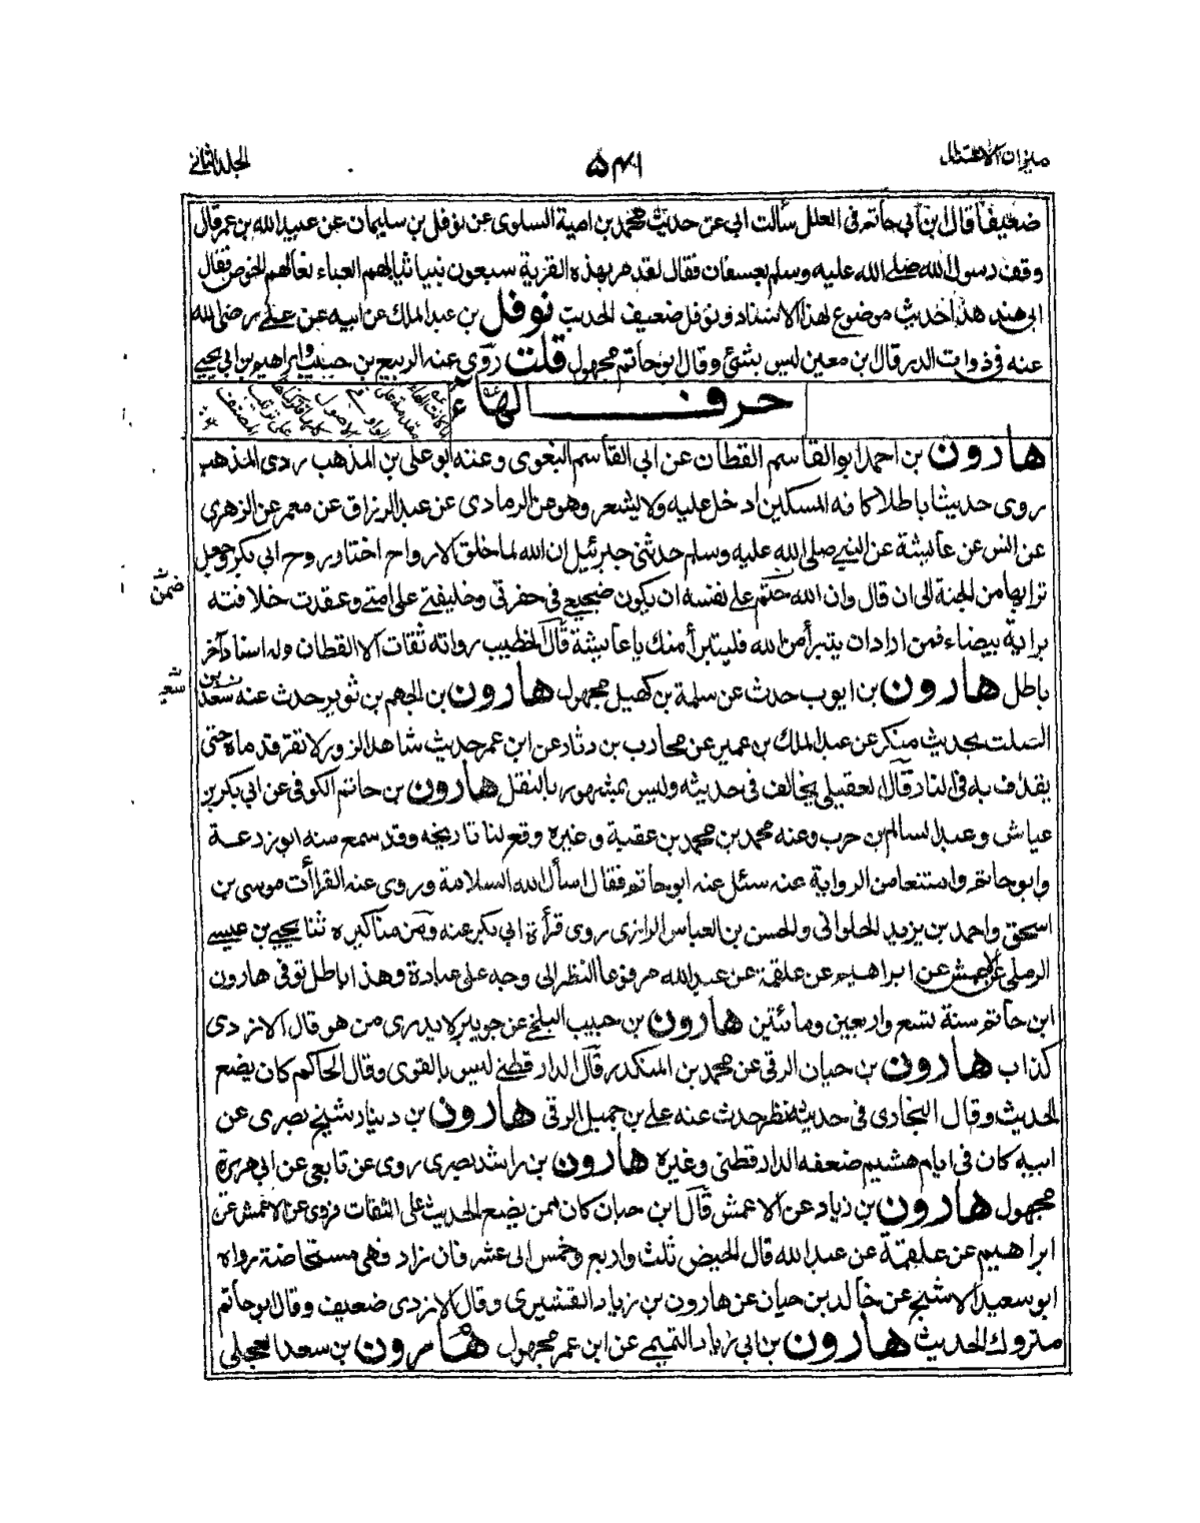 ميزان الاعتدال
٥٤١
الجلد الثاني
ضعيفا قال ابن ابي حاتم في العلل سألت ابي عن حديث محمد بن امية السلوى عن نوفل بن سليمان عن عبيد الله بن عمر قال
وقف رسول الله صلى الله عليه وسلم بعسفان فقال لقد مر بهذه القرية سبعون نبيا ثيابهم العباء نعالهم الخوص فقال
ابي هند هذا حديث موضوع بهذا الاسناد و نوفل ضعيف الحديث نوفل بن عبد الملك عن ابيه عن على رضى الله
عنه في ذوات الدر قال ابن معين ليس بشئ وقال ابو حاتم مجهول قلت روى عنه الربيع بن حبيب وابراهيم بن ابي يحيى
حرف الهاء
كانت الهاء مقدمة على الواو في الاصول على ترتيب المصنف
هارون بن احمد ابو القاسم القطان عن ابي القاسم البغوى وعنه ابو على بن المذهب ردى المذهب
روى حديثا باطلا كانه المسكين ادخل عليه ولا يشعر وهو عن الرمادى عن عبد الرزاق عن معمر عن الزهرى
عن انس عن عايشة عن النبي صلى الله عليه وسلم حدثنى جبرئيل ان الله لما خلق الارواح اختار روح ابي بكر وجعل
ترابها من الجنة الى ان قال وان الله حتم على نفسه ان يكون ضجيعى في حفرتى وخليفتى على امتى وعقدت خلافته
ضمن
براية بيضاء فمن اراد ان يتبرأ من الله فليتبرأ منك يا عايشة قال الخطيب رواته ثقات الا القطان وله اسناد آخر
باطل هارون بن ايوب حدث عن سلمة بن كهيل مجهول هارون بن الجهم بن ثوير حدث عنه سعد بن
سعيد
الصلت بحديث منكر عن عبد الملك بن عمير عن محارب بن دثار عن ابن عمر حديث شاهد الزور لا تقر قدماه حتى
يقذف به في النار قال العقيلى يخالف في حديثه وليس بمشهور بالنقل هارون بن حاتم الكوفى عن ابي بكر بن
عياش وعبد السلام بن حرب وعنه محمد بن محمد بن عقبة وغيره وقع لنا تاريخه وقد سمع منه ابو زرعة
وابو حاتم وامتنعا من الرواية عنه سئل عنه ابو حاتم فقال اسأل الله السلامة وروى عنه القراأت موسى بن
اسحق واحمد بن يزيد الحلوانى والحسن بن العباس الرازى روى قرأة ابي بكر عنه ومن مناكيره ثنا يحيى بن عيسى
الرملى عن الاعمش عن ابراهيم عن علقمة عن عبد الله مرفوعا النظر الى وجه على عبادة وهذا باطل توفى هارون
ابن حاتم سنة تسع واربعين ومائتين هارون بن حبيب البلخى عن جويبر لا يدرى من هو قال الازدى
كذاب هارون بن حيان الرقى عن محمد بن المنكدر قال الدارقطنى ليس بالقوى وقال الحاكم كان يضع
الحديث وقال البخارى في حديثه نظر حدث عنه على بن جميل الرقى هارون بن دينار شيخ بصرى عن
ابيه كان في ايام هشيم ضعفه الدارقطنى وغيره هارون بن راشد بصرى روى عن تابعى عن ابي هريرة
مجهول هارون بن زياد عن الاعمش قال ابن حبان كان ممن يضع الحديث على الثقات فروى عن الاعمش عن
ابراهيم عن علقمة عن عبد الله قال الحيض ثلث واربع وخمس الى عشر فان زاد فهى مستحاضة رواه
ابو سعيد الاشج عن خالد بن حيان عن هارون بن زياد القشيرى وقال الازدى ضعيف وقال ابو حاتم
متروك الحديث هارون بن ابي زياد التميمى عن ابن عمر مجهول هارون بن سعد العجلى